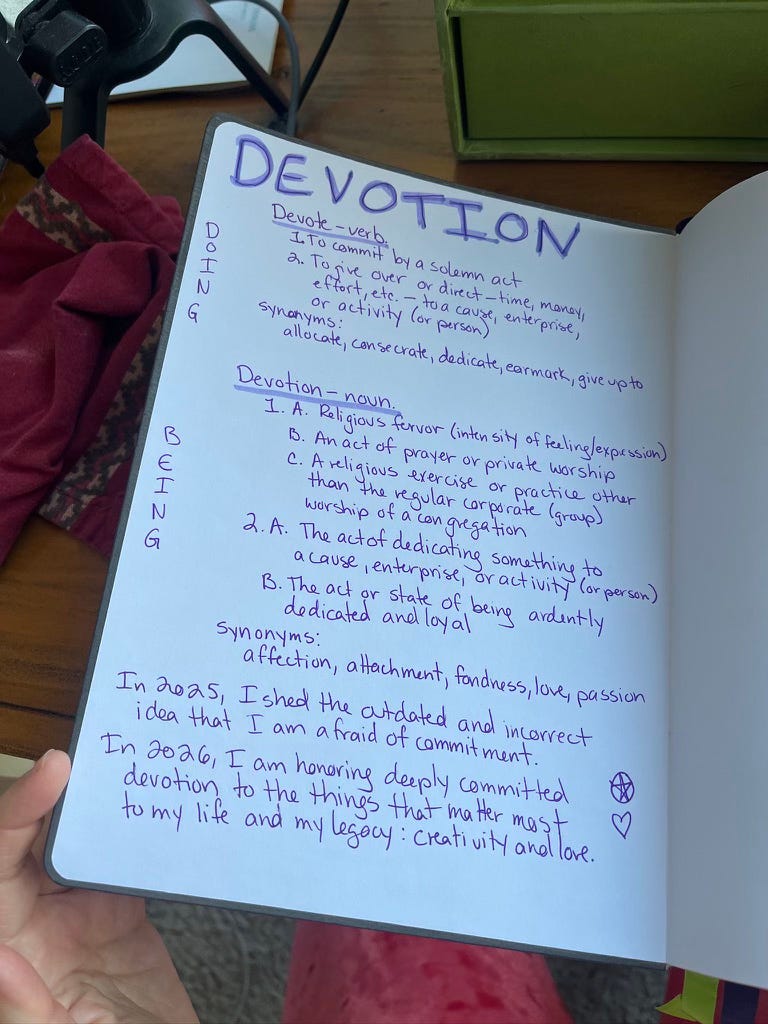 DEVOTION
DOING
Devote - verb.
1. To commit by a solemn act
2. To give over or direct - time, money,
effort, etc. - to a cause, enterprise,
or activity (or person)
synonyms:
allocate, consecrate, dedicate, earmark, give up to
BEING
Devotion - noun.
1. A. Religious fervor (intensity of feeling/expression)
B. An act of prayer or private worship
C. A religious exercise or practice other
than the regular corporate (group)
worship of a congregation
2. A. The act of dedicating something to
a cause, enterprise, or activity (or person)
B. The act or state of being ardently
dedicated and loyal
synonyms:
affection, attachment, fondness, love, passion
In 2025, I shed the outdated and incorrect
idea that I am afraid of commitment.
In 2026, I am honoring deeply committed
devotion to the things that matter most
to my life and my legacy: creativity and love.